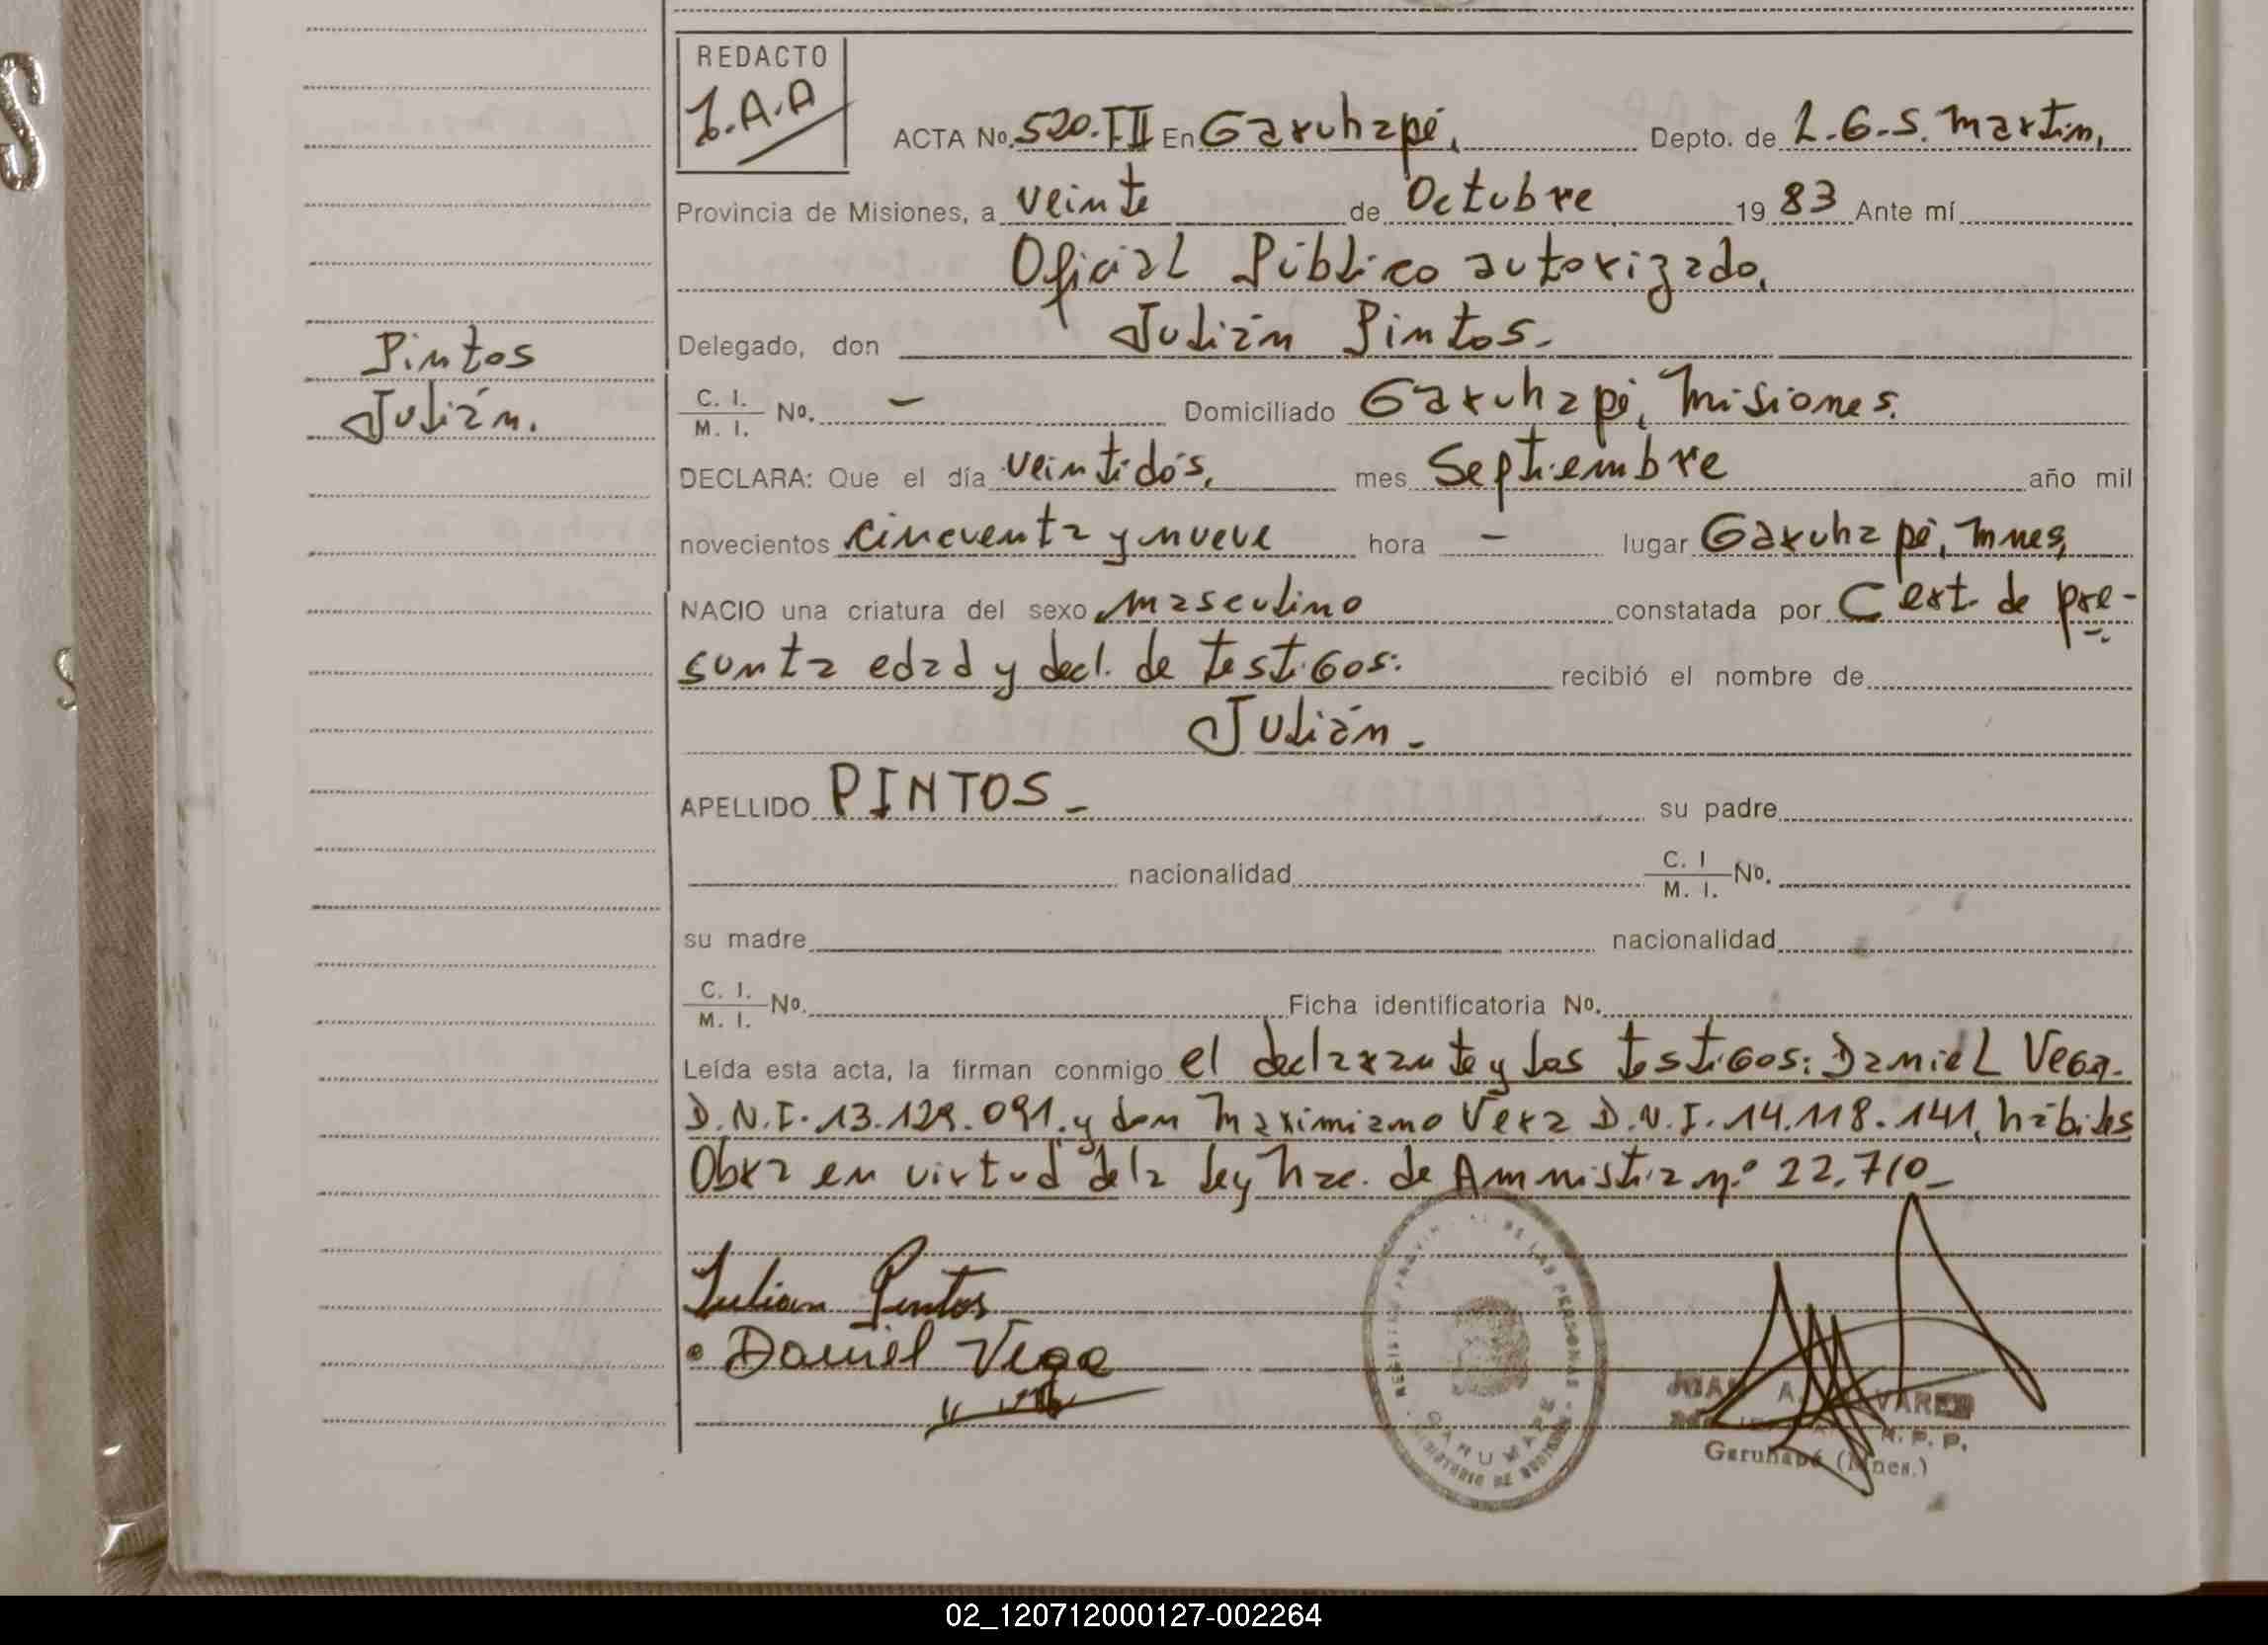 REDACTO
J.A.A
ACTA No. 520.TII En Garuhapé, Depto. de L.G.S. Martin,
Provincia de Misiones, a veinte de Octubre 19 83 Ante mí
Oficial Público autorizado,
Delegado, don Julián Pintos.
Pintos
Julián.
C. I. / M. I. No. - Domiciliado Garuhapé, Misiones.
DECLARA: Que el día veintidós, mes Septiembre año mil
novecientos cincuenta y nueve hora - lugar Garuhapé, Mnes,
NACIO una criatura del sexo masculino constatada por Cert. de pre-
sunta edad y decl. de testigos: recibió el nombre de
Julián.
APELLIDO PINTOS - su padre
nacionalidad C. I / M. I. No.
su madre nacionalidad
C. I. / M. I. No. Ficha identificatoria No.
Leída esta acta, la firman conmigo el declarante y los testigos: Daniel Vega.
D.N.I. 13.129.091. y don Maximiano Vera D.N.I. 14.118.141, hábiles
Obra en virtud de la ley Nac. de Amnistia n.º 22.710_
Julian Pintos
Daniel Vega
DE LAS PERSONAS
JUAN A.
R. P. P.
Garuhapé (Mnes.)
02_120712000127-002264